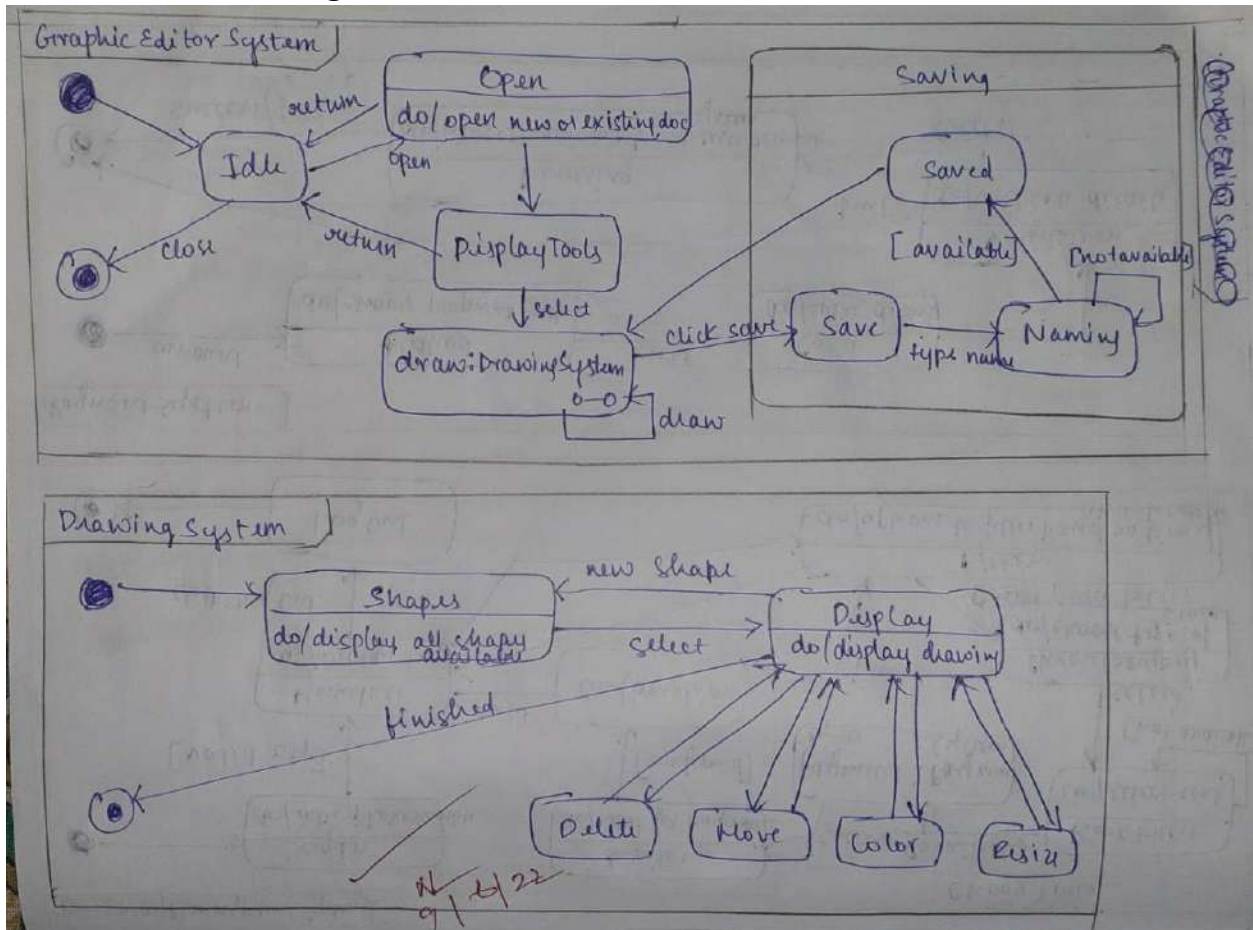 Graphic Editor System
Open
do/open new or existing doc
return
Idle
open
close
return
DisplayTools
select
draw:DrawingSystem
draw
click save
Saving
Saved
[available]
[notavailable]
Save
type name
Naming
Graphic Editor System
Drawing System
Shapes
do/display all shapes
available
new shape
select
Display
do/display drawing
finished
Delete
Move
Color
Resize